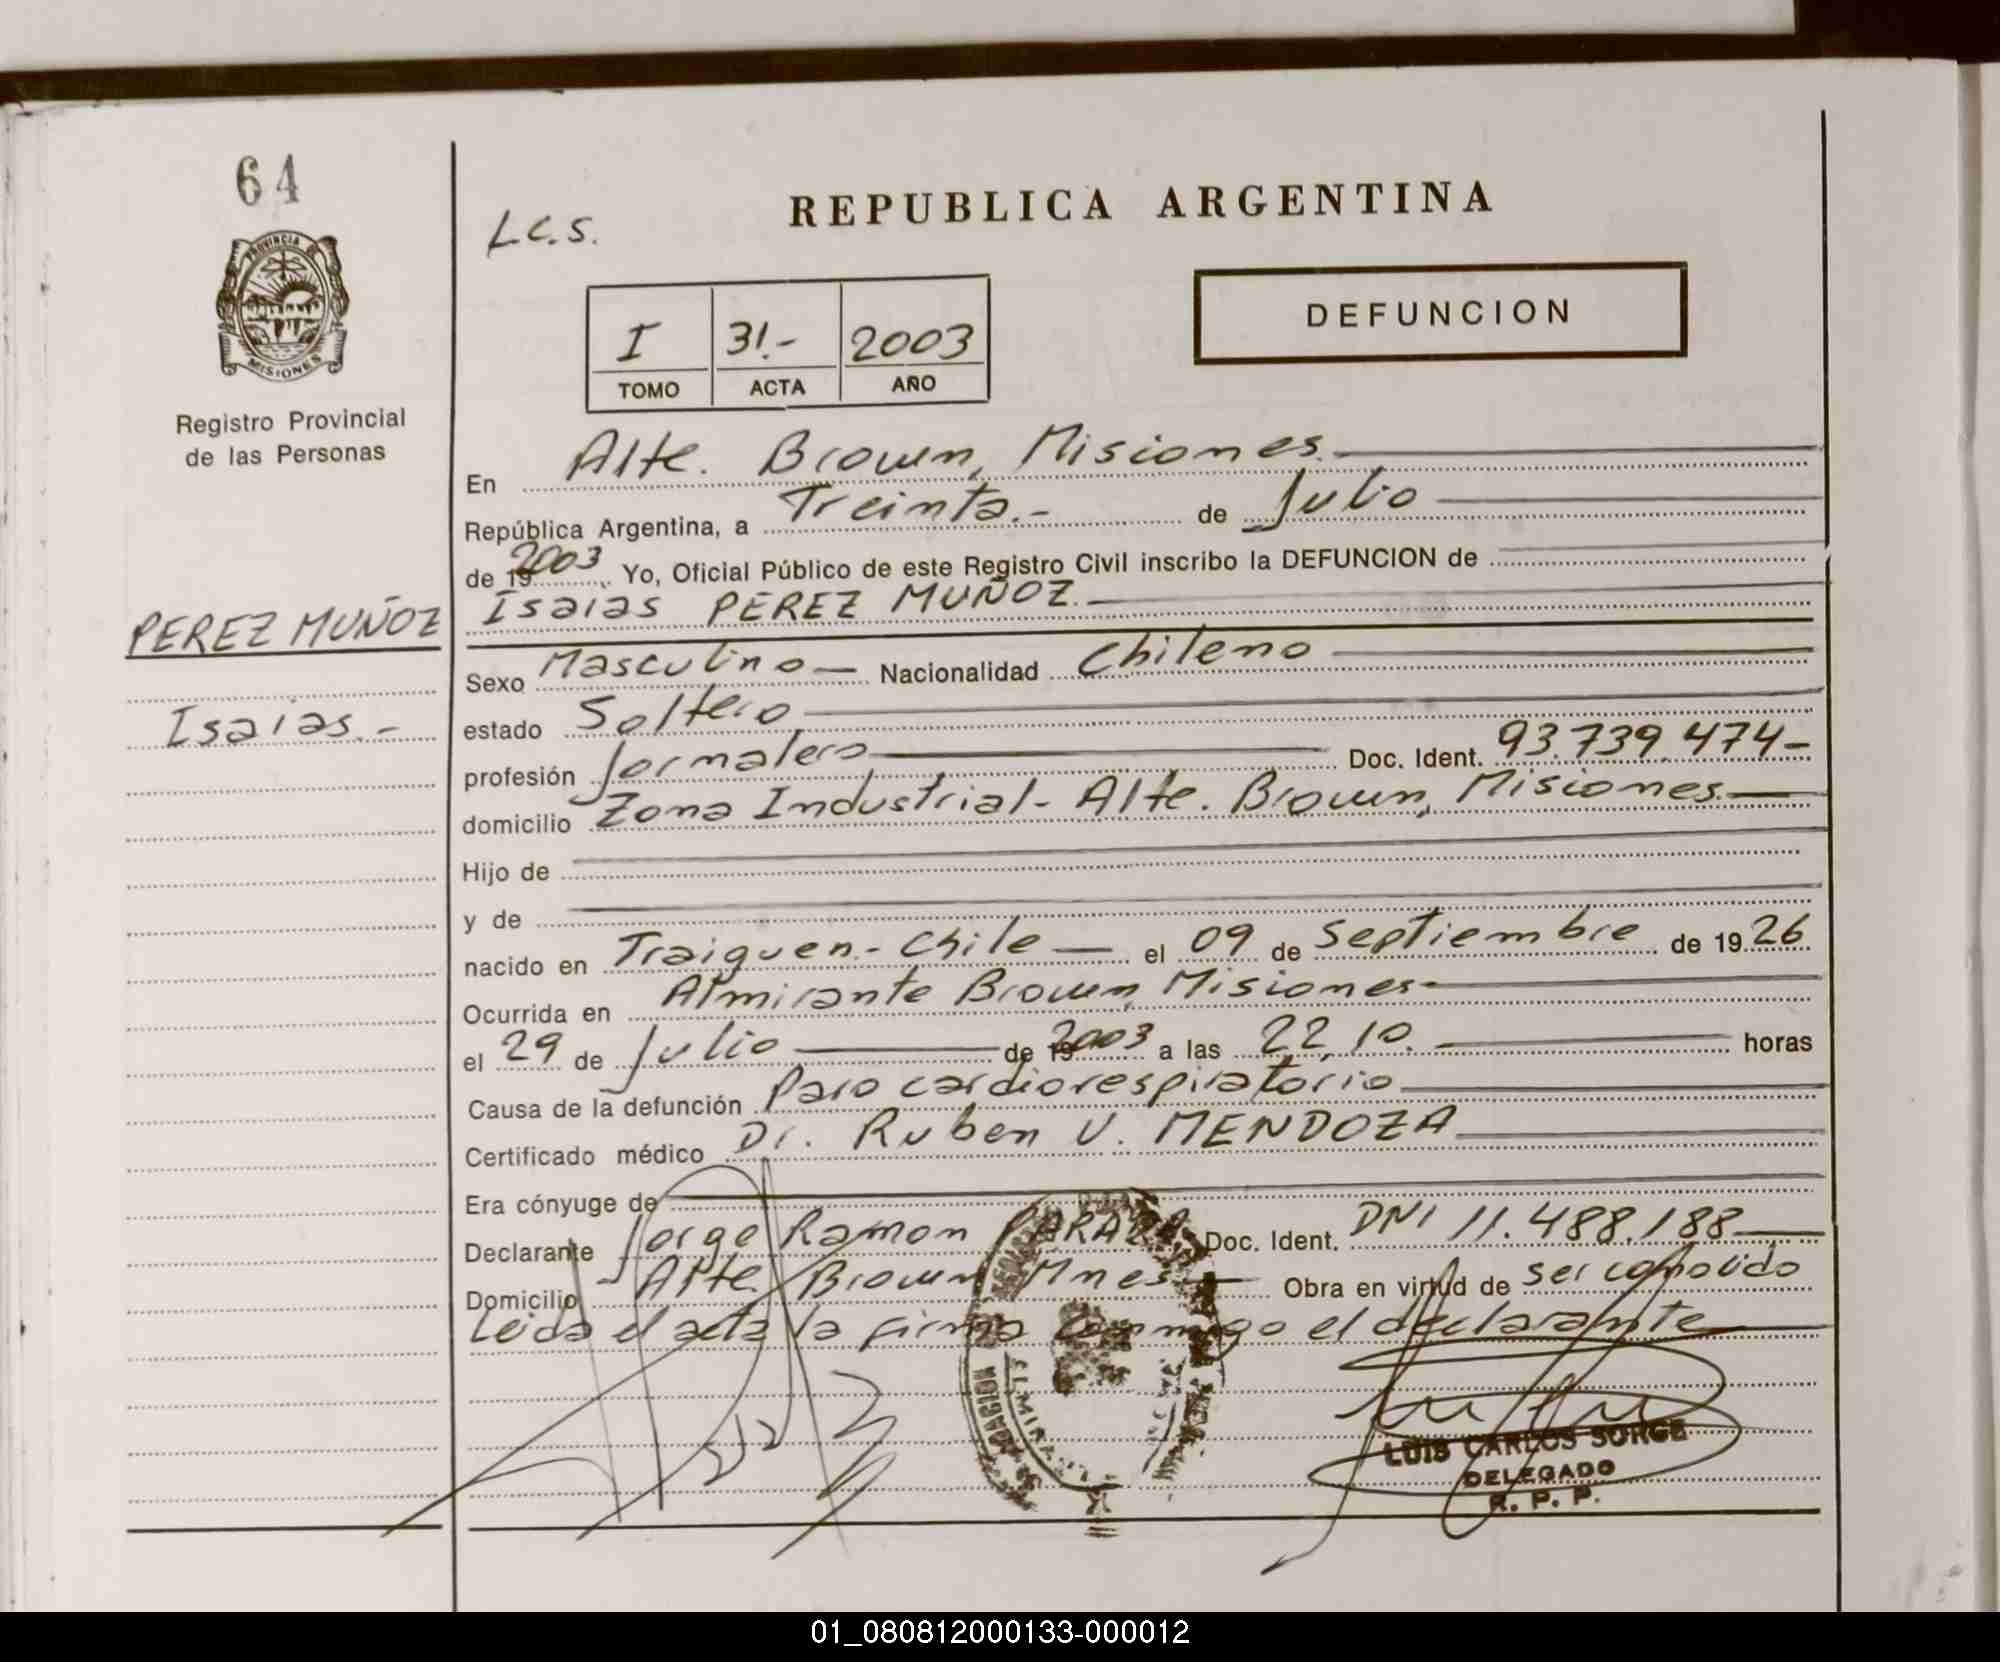 64
PROVINCIA DE
MISIONES
Registro Provincial
de las Personas
PEREZ MUÑOZ
Isaias.-
L.C.S.
REPUBLICA ARGENTINA
I 31.- 2003
TOMO ACTA AÑO
DEFUNCION
En Alte. Brown, Misiones.
República Argentina, a Treinta.- de Julio
de 19 2003. Yo, Oficial Público de este Registro Civil inscribo la DEFUNCION de
Isaias PEREZ MUÑOZ.
Sexo Masculino Nacionalidad Chileno
estado Soltero
profesión Jornalero Doc. Ident. 93.739.474-
domicilio Zona Industrial - Alte. Brown, Misiones.
Hijo de
y de
nacido en Traiguen - Chile el 09 de Septiembre de 1926
Ocurrida en Almirante Brown, Misiones
el 29 de Julio de 19 2003 a las 22,10. horas
Causa de la defunción Paro cardiorespiratorio
Certificado médico Dr. Ruben V. MENDOZA
Era cónyuge de
Declarante Jorge Ramon Doc. Ident. DNI 11.488.188
Domicilio Alte. Brown Mnes Obra en virtud de ser conocido
Leida el acta la firma conmigo el declarante
LUIS CARLOS SORGE
DELEGADO
R. P. P.
01_080812000133-000012